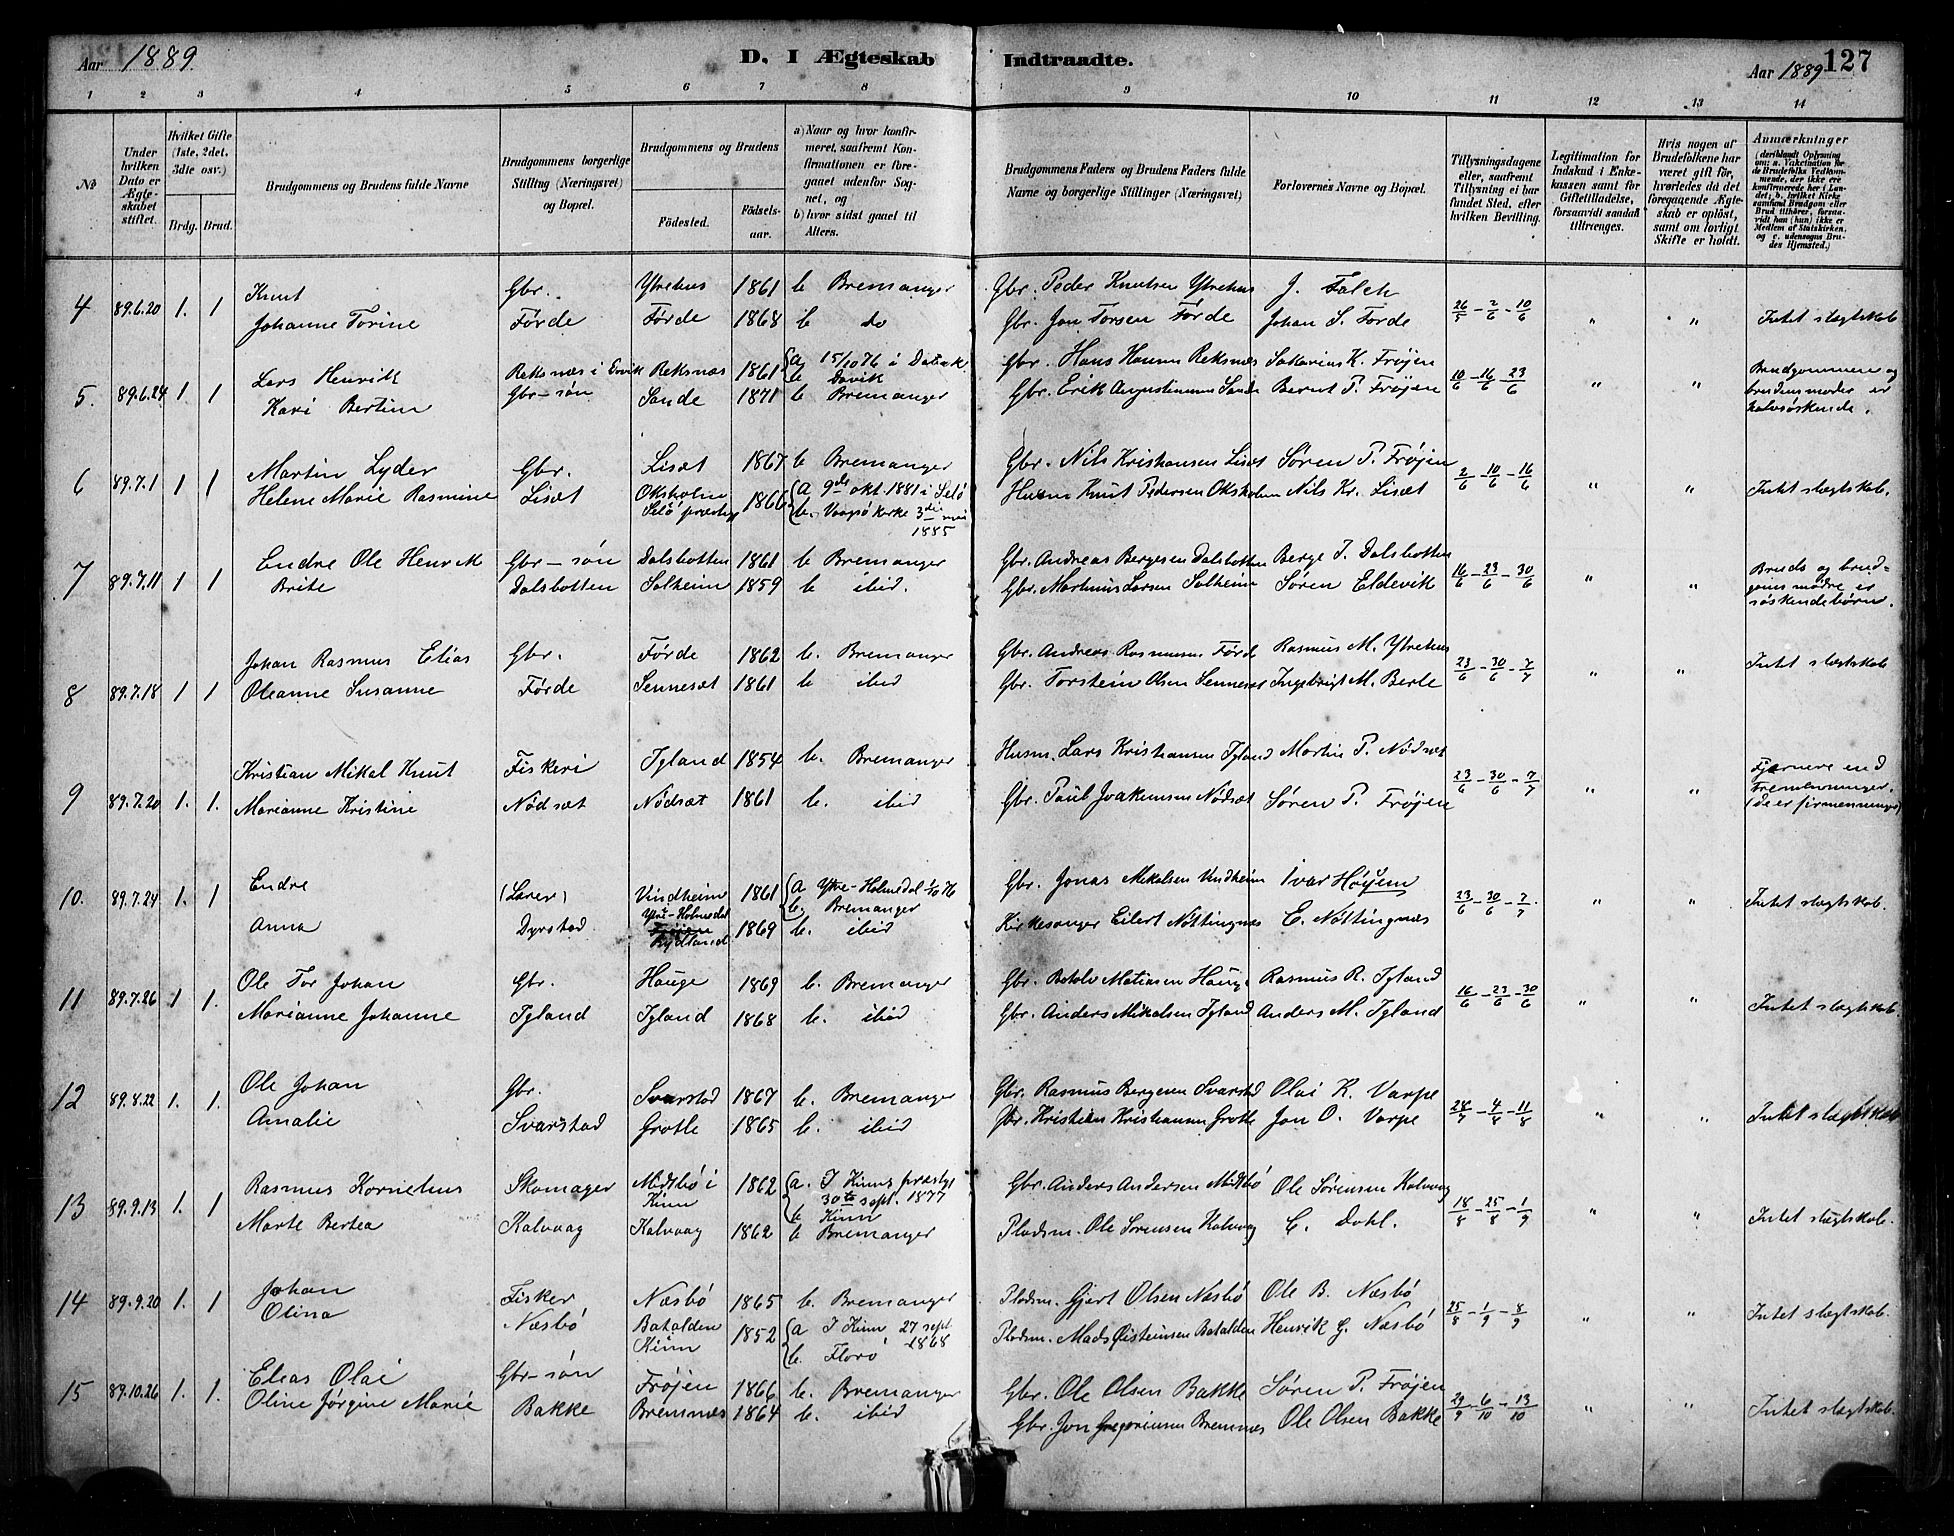 Aar 1889.
D. I Ægteskab Indtraadte.
Aar 1889 127
1 2 3 4 5 6 7 8 9 10 11 12 13 14
No
Under hvilken Dato er Ægteskabet stiftet.
Hvilket Gifte (1ste, 2det, 3dte osv.)
Brdg. Brud.
Brudgommens og Brudens fulde Navne
Brudgommens borgerlige Stilling (Næringsvei) og Bopæl.
Brudgommens og Brudens
Fødested. Fødselsaar.
a) Naar og hvor konfirmeret, saafremt Konfirmationen er foregaaet udenfor Sognet, og
b) hvor sidst gaaet til Alters.
Brudgommens Faders og Brudens Faders fulde Navne og borgerlige Stillinger (Næringsvei)
Forlovernes Navne og Bopæl.
Tillysningsdagene eller, saafremt Tillysning ei har fundet Sted, efter hvilken Bevilling.
Legitimation for Indskud i Enkekassen samt for Giftetilladelse, forsaavidt saadan tiltrænges.
Hvis nogen af Brudefolkene har været gift før, hvorledes da det foregaaende Ægteskab er opløst, samt om lovligt Skifte er holdt.
Anmærkninger
(deriblandt Oplysning om: a. Vakcination for de Brudefolks Vedkommende, der ikke ere konfirmerede her i Landet; b. hvilket Kirkesamfund Brudgom eller Brud tilhører, forsaavidt han (hun) ikke er Medlem af Statskirken, og c. udensogns Brudes Hjemsted.)
4 89.6.20 1. 1 Knut Gbr. Ytrehus 1861 b Bremanger Gbr. Peder Knutsen Ytrehus J. Falch 26/5 - 2/6 - 10/6 " " Intet slægtskab
Johanne Torine Førde Førde 1868 b do Gbr. Jon Torsen Førde Johan S. Førde
5. 89.6.24 1 1 Lars Henrik Reksnæs i Ervik Reksnæs 1861 a 15/10 76 i Davik b Davik Gbr. Hans Hansen Reksnæs Sakarias K. Frøjen 10/6 - 16/6 - 23/6 " " Brudgommen og brudens moder er halvsøskende.
Kari Bertine Gbr-søn Sande 1871 b Bremanger Gbr. Erik Augustinussen Sande Bernt P. Frøjen
6 89.7.1 1 1 Martin Lyder Gbr. Lisæt 1867 b Bremanger Gbr. Nils Kristiansen Lisæt Søren P. Frøjen 2/6 - 10/6 - 16/6 " " Intet slægtskab.
Helene Marie Rasmine Lisæt Oksholm Selø præstegj 1866 a 9de okt. 1881 i Selø b. Vaagsø kirke 3die mai 1885 Husm Knut Pedersen Oksholm Nils Kr. Lisæt
7 89.7.11 1 1 Endre Ole Henrik Gbr-søn Dalsbotten 1861 b Bremanger Gbr. Andreas Bergesen Dalsbotten Berge J. Dalsbotten 16/6 - 23/6 - 30/6 " " Bruds og brudgoms mødre er søskendebørn.
Brite Dalsbotten Solheim 1859 b ibid. Gbr. Martinus Larsen Solheim Søren Eldevik
8 89.7.18 1 1 Johan Rasmus Elias Gbr. Førde 1862 b. Bremanger Gbr. Andreas Rasmussen Førde Rasmus M. Ytrehus 23/6 - 30/6 - 7/7 " " Intet slægtskab
Oleanne Susanne Førde Sennesæt 1861 b ibid Gbr. Torstein Olsen Sennesæt Ingebrigt M. Berle
9 89.7.20 1. 1. Kristian Mikal Knut Fiskeri Igland 1854 b. Bremanger Husm. Lars Kristiansen Igland Martin P. Nødsæt 23/6 - 30/6 - 7/7 " " Fjernere end tremenninger. (de er firmenninger)
Marianne Kristine Nødsæt Nødsæt 1861 b. ibid Gbr. Paul Joakimsen Nødsæt Søren P. Frøjen
10. 89.7.24 1. 1 Endre (Lærer) Vindheim Ytre-Holmedal 1861 a Ytre-Holmedal 1/10 76 b. Bremanger Gbr. Jonas Mikalsen Vindheim Ivar Høyem 23/6 - 30/6 - 7/7. " " Intet slægtskab.
Anna Dyrstad Frøjen Rydland 1869 b. ibid Kirkesanger Eilert Nøttingnæs E. Nøttingnæs
11 89.7.26 1 1. Ole Tor Johan Gbr. Hauge 1869 b. Bremanger Gbr. Botolv Matiasen Hauge Rasmus R. Igland 16/6 - 23/6 - 30/6 " " Intet slægtskab.
Marianne Johanne Igland Igland 1868 b. ibid Gbr. Anders Mikalsen Igland Anders M. Igland
12 89.8.22 1. 1. Ole Johan Gbr. Svarstad 1867 b. Bremanger Gbr. Rasmus Bergesen Svarstad Olai K. Varpe 28/7 - 4/8 - 11/8 " " Intet slægtskab
Amalie Svarstad Grotle 1865 b. ibid Gbr. Kristian Kristiansen Grotle Jon O. Varpe
13 89.9.13 1. 1 Rasmus Kornelius Skomager Midtbø i Kinn 1862 a. I Kinns præstgj 30te sept. 1877 b Kinn Gbr. Anders Andersen Midtbø Ole Sørensen Kalvaag 18/8 - 25/8 - 1/9 " " Intet slægtskab.
Marte Bertea Kalvaag Kalvaag 1862 b Bremanger Pladsm. Ole Sørensen Kalvaag C. Dahl.
14 89.9.20 1. 1 Johan Fisker Næsbø 1865 b. Bremanger Pladsm. Gjert Olsen Næsbø Ole B. Næsbø 25/8 - 1/9 - 8/9 " " Intet slægtskab.
Olina Næsbø Batalden Kinn 1852 a I Kinn 27 sept 1868 b. Florø Pladsm. Mads Øisteinsen Batalden Henrik G. Næsbø
15 89.10.26 1. 1. Elias Olai Gbr-søn Frøjen 1866 b. Bremanger Gbr. Ole Olsen Bakke Søren P. Frøjen 29/9 - 6/10 - 13/10 " " Intet slægtskab.
Oline Jørgine Marie Bakke Bremnæs 1864 b. ibid Gbr. Jon Gregoriussen Bremnæs Ole Olsen Bakke